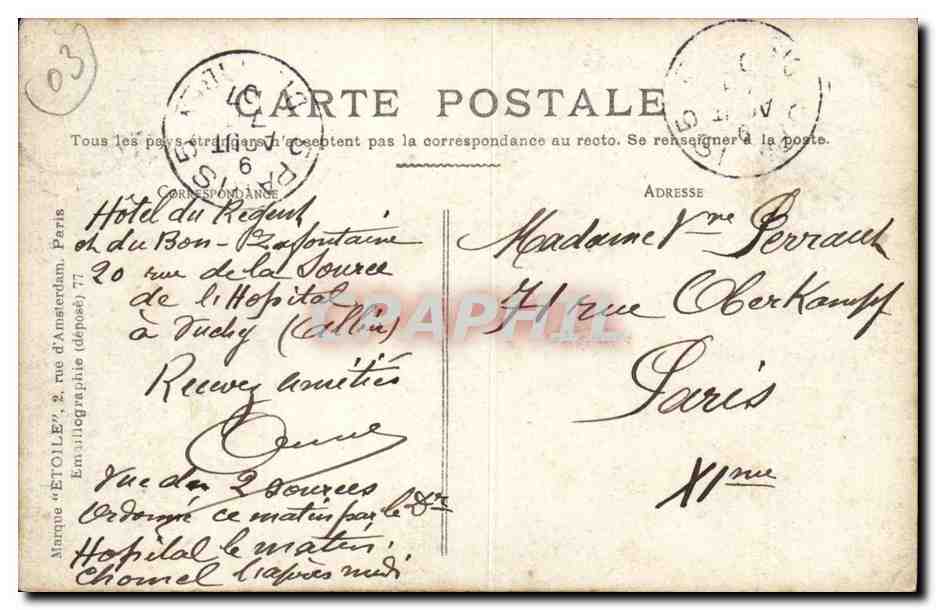 03
CARTE POSTALE
Tous les pays étrangers n'acceptent pas la correspondance au recto. Se renseigner à la poste.
CORRESPONDANCE
Hôtel du Régent
et du Bon-Lafontaine
20 rue de la Source
de l'Hopital
à Vichy (Allier)
Recevez amitiés
Vue des 2 sources
Ordonné ce matin par le Dr
Hopital le matin,
Chomel l'après midi
ADRESSE
Madame Vve Perrault
71 rue Oberkampf
Paris
XIme
Marque "ETOILE", 2, rue d'Amsterdam, Paris
Emaillographie (déposé) 77
PARIS 5
9
AOUT
07
CPAPHIL